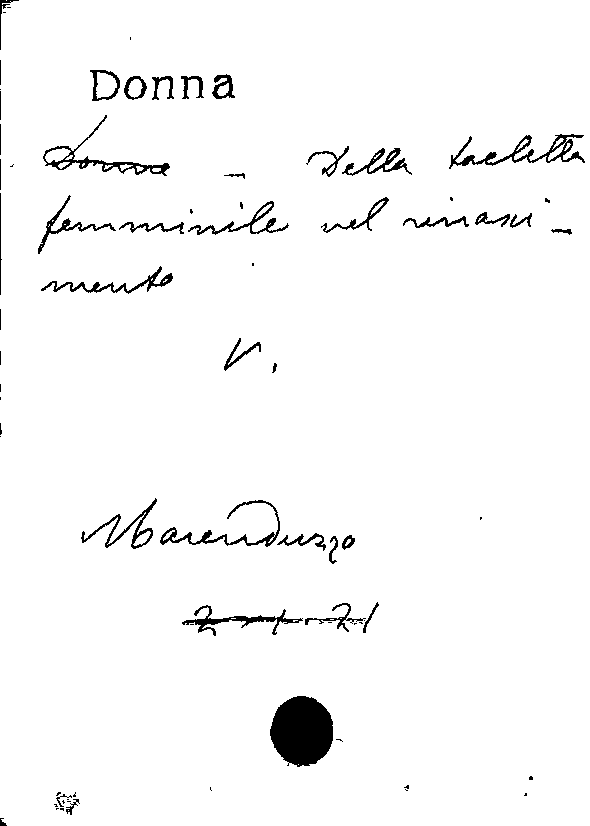 Donna
Donne - Della tacletta
femminile nel rinasci-
mento
V.
Marenduzzo
2-x-1.21